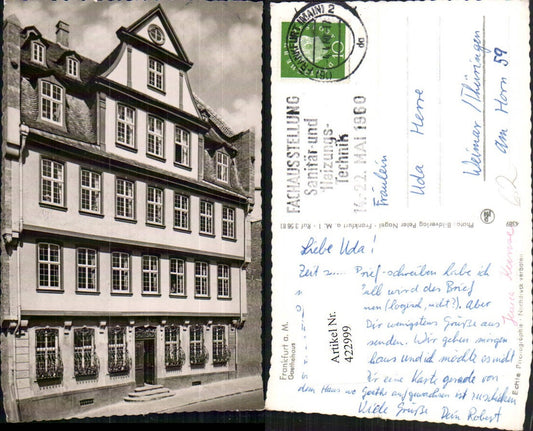 FRANKFURT (MAIN) 2
10
FACHAUSSTELLUNG
Sanitär-und
Heizungs-
Technik
14.-22. MAI 1960
Fräulein
Uda Herre
Weimar / Thüringen
am Horn 59
62
Photo-Bildverlag Peter Nagel · Frankfurt a. M. 1 · Ruf
Frankfurt a. M.
Goethehaus
Echte Photographie · Nachdruck verboten
Artikel Nr.
422999
Liebe Uda!
Zeit z... Brief-schreiben habe ich
'all wird des Brief
Aber
Dir wenigstens Grüße aus
senden. Wir gehen morgen
haus und da möchte es nicht
Dir eine Karte gerade von
dem Haus wo Goethe aufgewachsen ist zu schicken
Viele Grüße Dein Robert